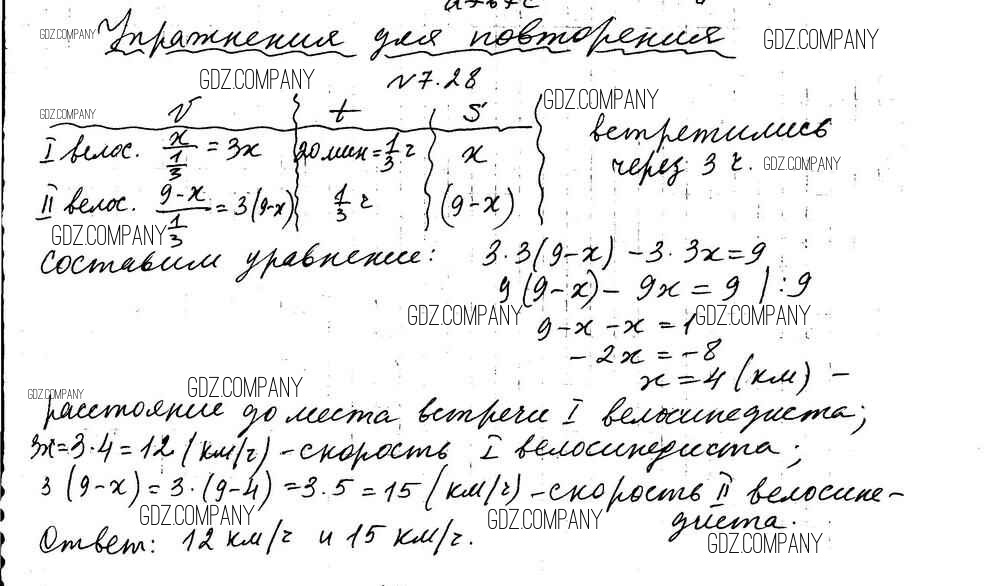 Упражнения для повторения
GDZ.COMPANY
GDZ.COMPANY
GDZ.COMPANY
№7.28
GDZ.COMPANY
GDZ.COMPANY
V t S
I велос. x/(1/3) = 3x 20 мин = 1/3 ч x
встретились
через 3 ч.
GDZ.COMPANY
II велос. (9-x)/(1/3) = 3(9-x) 1/3 ч (9-x)
GDZ.COMPANY
Составим уравнение: 3·3(9-x) - 3·3x = 9
9(9-x) - 9x = 9 | :9
GDZ.COMPANY
GDZ.COMPANY
9-x-x = 1
-2x = -8
GDZ.COMPANY
GDZ.COMPANY
x = 4 (км) -
расстояние до места встречи I велосипедиста;
3x=3·4=12 (км/ч) - скорость I велосипедиста;
3(9-x) = 3·(9-4) = 3·5 = 15 (км/ч) - скорость II велосипе-
диста.
GDZ.COMPANY
GDZ.COMPANY
Ответ: 12 км/ч и 15 км/ч.
GDZ.COMPANY